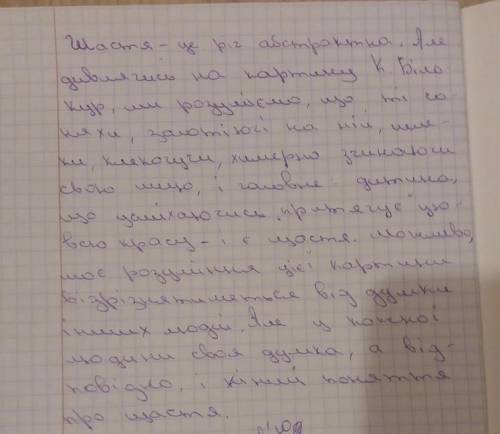 Щастя - це річ абстрактна. Але
дивлячись на картину К. Біло-
кур, ми розуміємо, що ті со-
няхи, золотіючі на ній, леле-
ки, клекочучи, химерно згинаючи
свою шию, і головне - дитина,
що усміхаючись, "притягує" цю
всю красу - і є щастя. Можливо,
моє розуміння цієї картини
відрізнятиметься від думки
інших людей. Але у кожної
людини своя думка, а від-
повідно, і хінші поняття
про щастя.